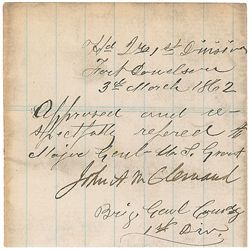 Hd Qrs 1st Division
Fort Donelson
3rd March 1862
Approved and re-
spectfully refered to
Major Genl U. S. Grant
John A McClernand
Brig Genl Comdg
1st Div.